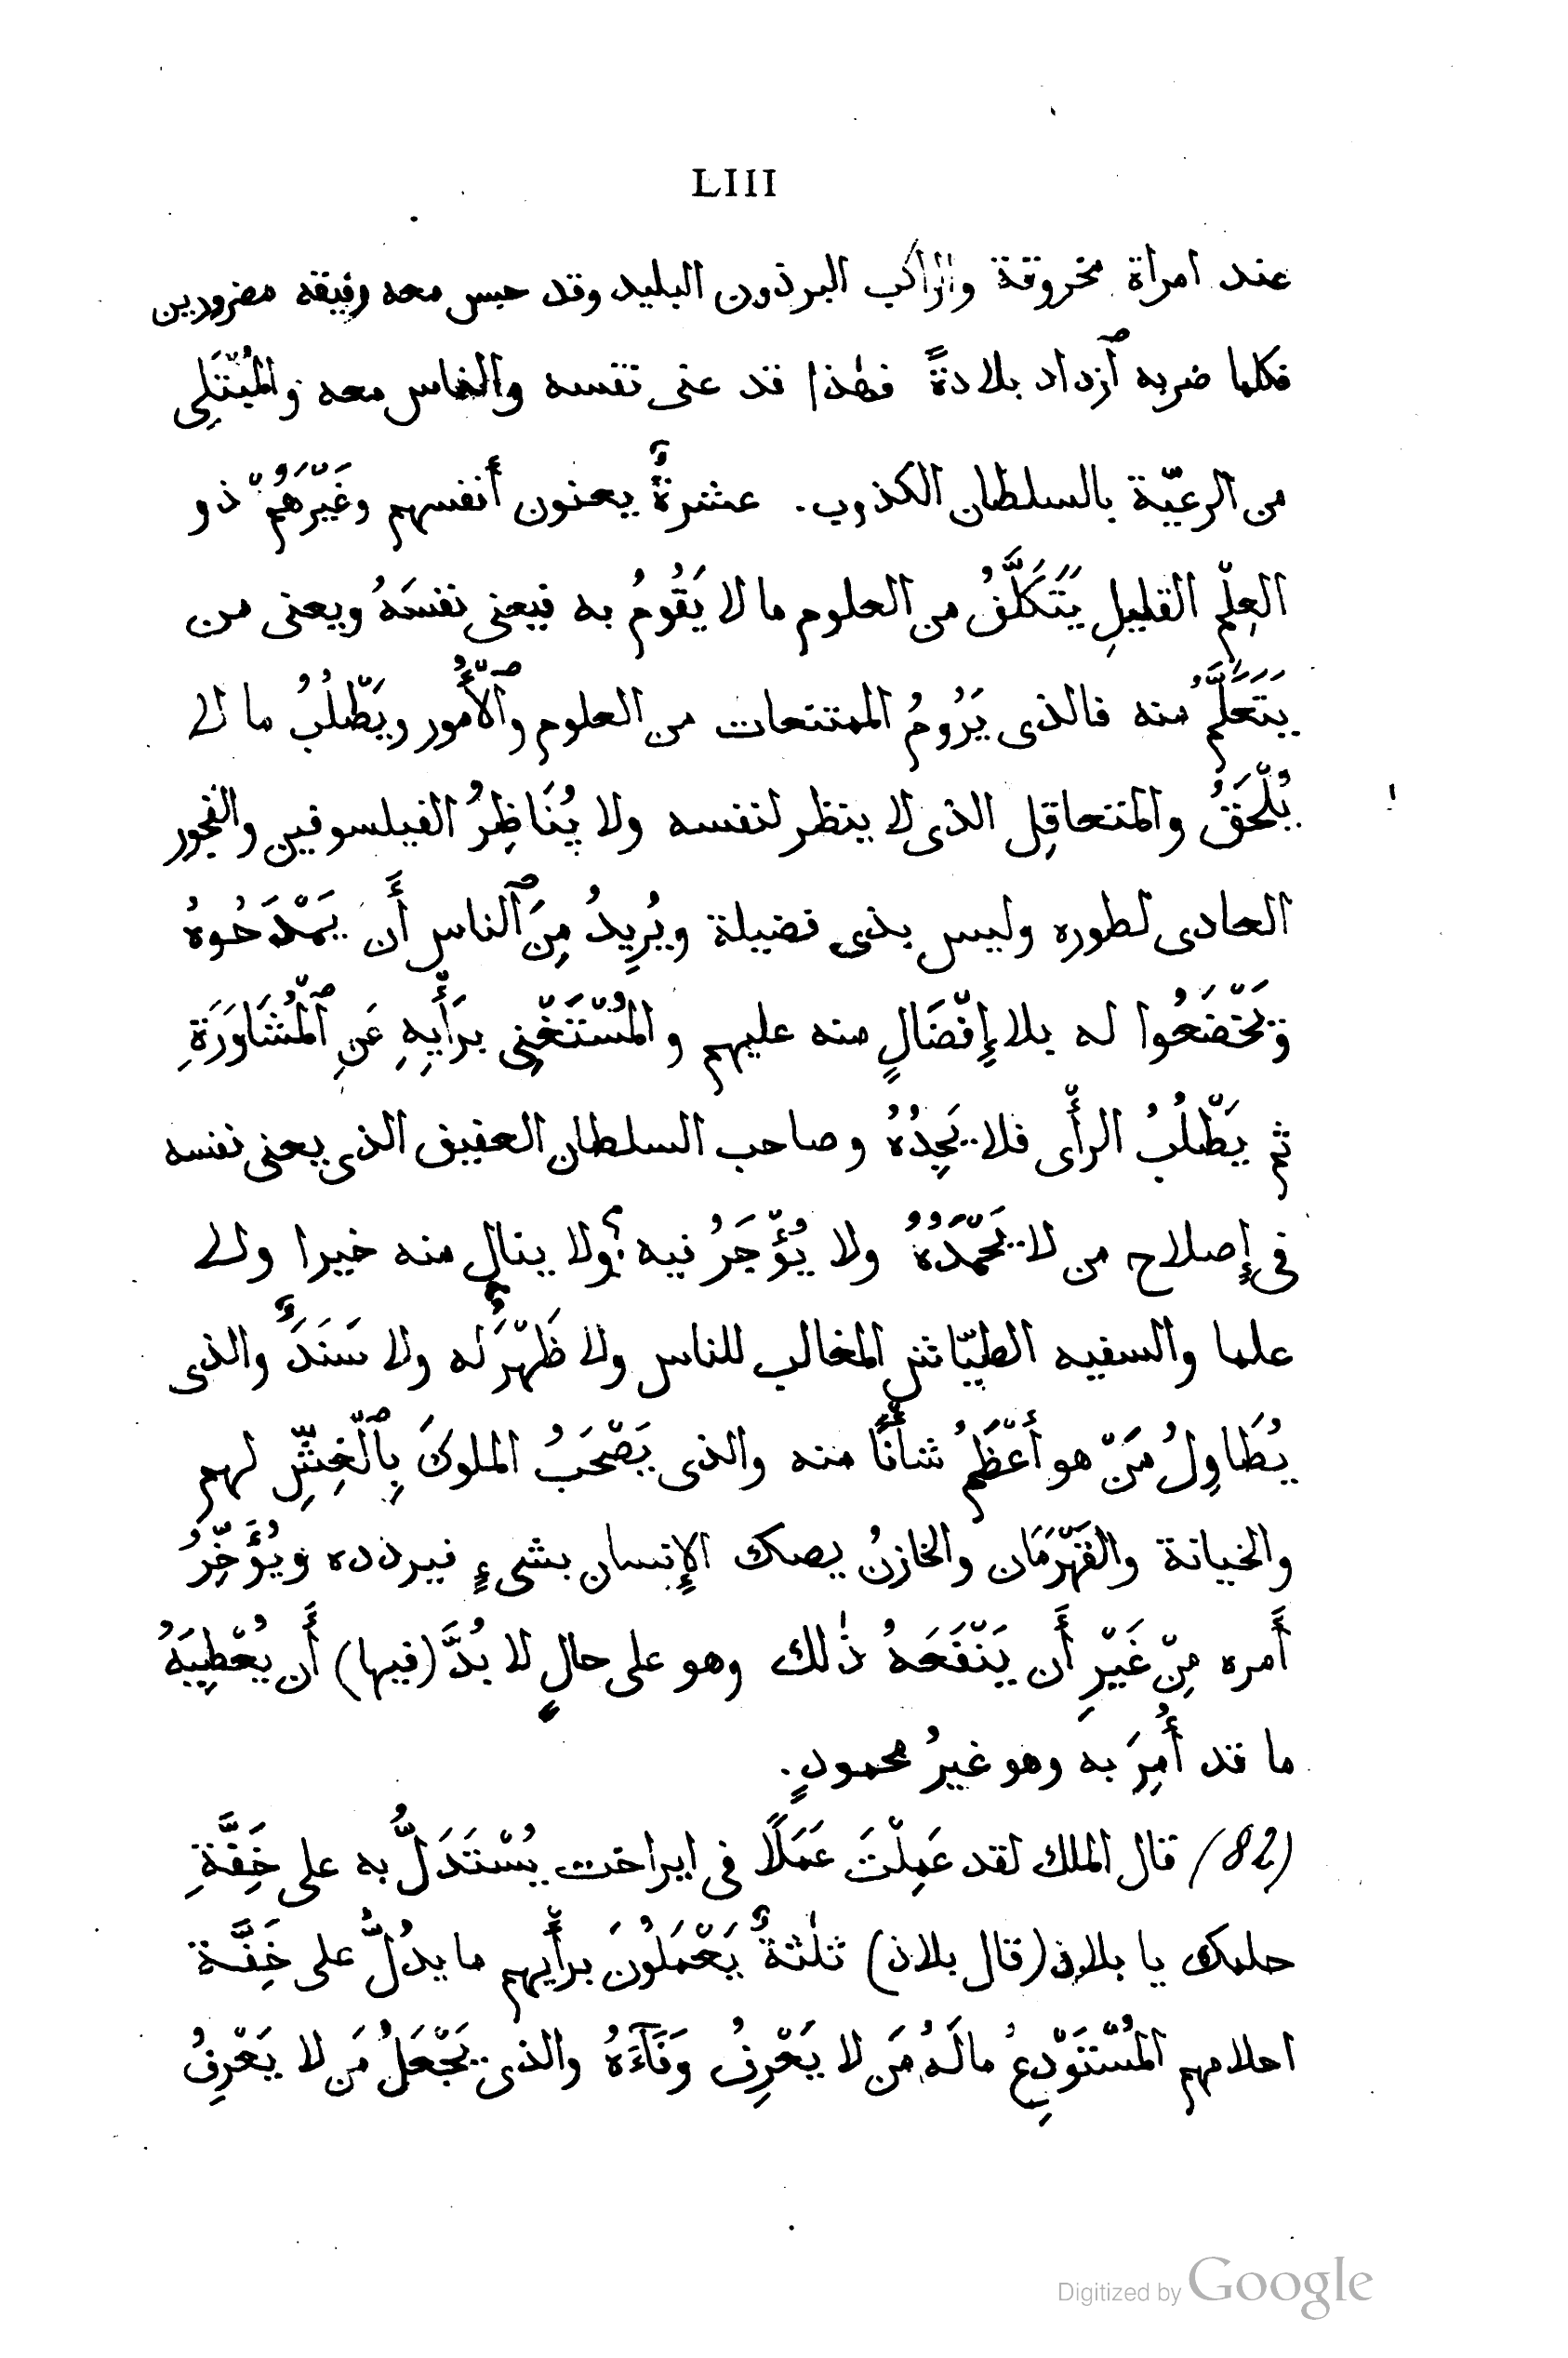 LIII
عند امراة مخروقة والراكب البرذون البليد وقد حبس معه رفيقه مضرورين
فكلما ضربه ٱزداد بلادةً فهٰذا قد عنى نفسه والناس معه والمُبْتَلِى
من الرعيّة بالسلطان الكذوب. عشرةٌ يعنون أنفسهم وغَيْرَهُمْ ذو
العِلْمِ القليلِ يَتَكَلَّفُ من العلوم ما لا يَقُومُ به فيعنى نفسَهُ ويعنى من
يَتَعَلَّمُ منه فالذى يَرُومُ الممتنعات من العلوم وٱلْأُمور ويَطْلُبُ ما لا
يُلْحَقُ والمتعاقِل الذى لا ينظر لنفسه ولا يُنَاظِرُ الفيلسوفين والفجور
العادى لطوره وليس بذى فضيلة ويُرِيدُ مِنَ ٱلناس أَن يَمْدَحُوهُ
وَيَخْضَعُوا له بلا إِفْضَالٍ منه عليهم والمُسْتَغْنِى برَأْيِهِ عَنِ ٱلْمُشَاوَرَةِ
ثم يَطْلُبُ الرأْى فلا يَجِدُهُ وصاحب السلطان العفيف الذى يعنى نفسه
فى إِصلاح من لا يَحْمَدُهُ ولا يُؤْجَرُ فيه ؟ولا ينال منه خيرا ولا
علما والسفيه الطيّاش المغالب للناس ولا ظَهْرَ له ولا سَنَدَ والذى
يُطَاوِلُ مَنْ هو أَعْظَمُ شأْنًا منه والذى يَصْحَبُ الملوكَ بِٱلْغِشِّ لهم
والخيانة والقَهْرَمَان والخازنُ يصك الإِنسان بشىءٍ فيردده وَيُؤَخِّرُ
أَمره مِنْ غَيْرِ أَن يَنْفَعَهُ ذٰلك وهو على حالٍ لا بُدَّ (فيها) أَن يُعْطِيَهُ
ما قد أُمِرَ به وهو غيرُ محمودٍ.
(82) قال الملك لقد عَمِلْتَ عَمَلًا فى ايراخت يُسْتَدَلُّ به على خِفَّةِ
حلمك يا بلاذ (قال بلاذ) ثلٰثةٌ يَعْمَلُونَ برأْيهم ما يدُلُّ على خِفَّة
احلامهم المُسْتَوْدِعُ مالَهُ مَن لا يَعْرِفُ وَفَآءَهُ والذى يَجْعَلُ مَن لا يَعْرِفُ
Digitized by Google